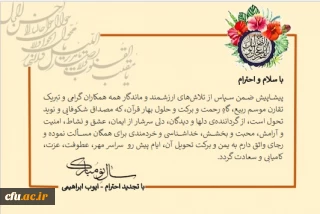 با سلام و احترام
پیشاپیش ضمن سپاس از تلاش‌های ارزشمند و ماندگار همه همکاران گرامی و تبریک
تقارن موسم ربیع، گاهِ رحمت و برکت و حلول بهار قرآن، که مصداق شکوفایی و نوید
تحول است، از گرداننده‌ی دلها و دیدگان، دلی سرشار از ایمان، عشق و نشاط، امنیت
و آرامش، محبت و بخشش، خداشناسی و خردمندی برای همگان مسألت نموده و
رجای واثق دارم به یمن و برکت تحویل آن، ایام پیش رو سراسر مهر، عطوفت، عزت،
کامیابی و سعادت گردد.
سال نو مبارک
با تجدید احترام - ایوب ابراهیمی
cfu.ac.ir